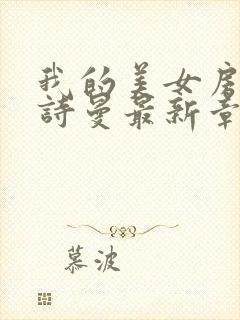 我的美女房
詩曼最新章
慕波